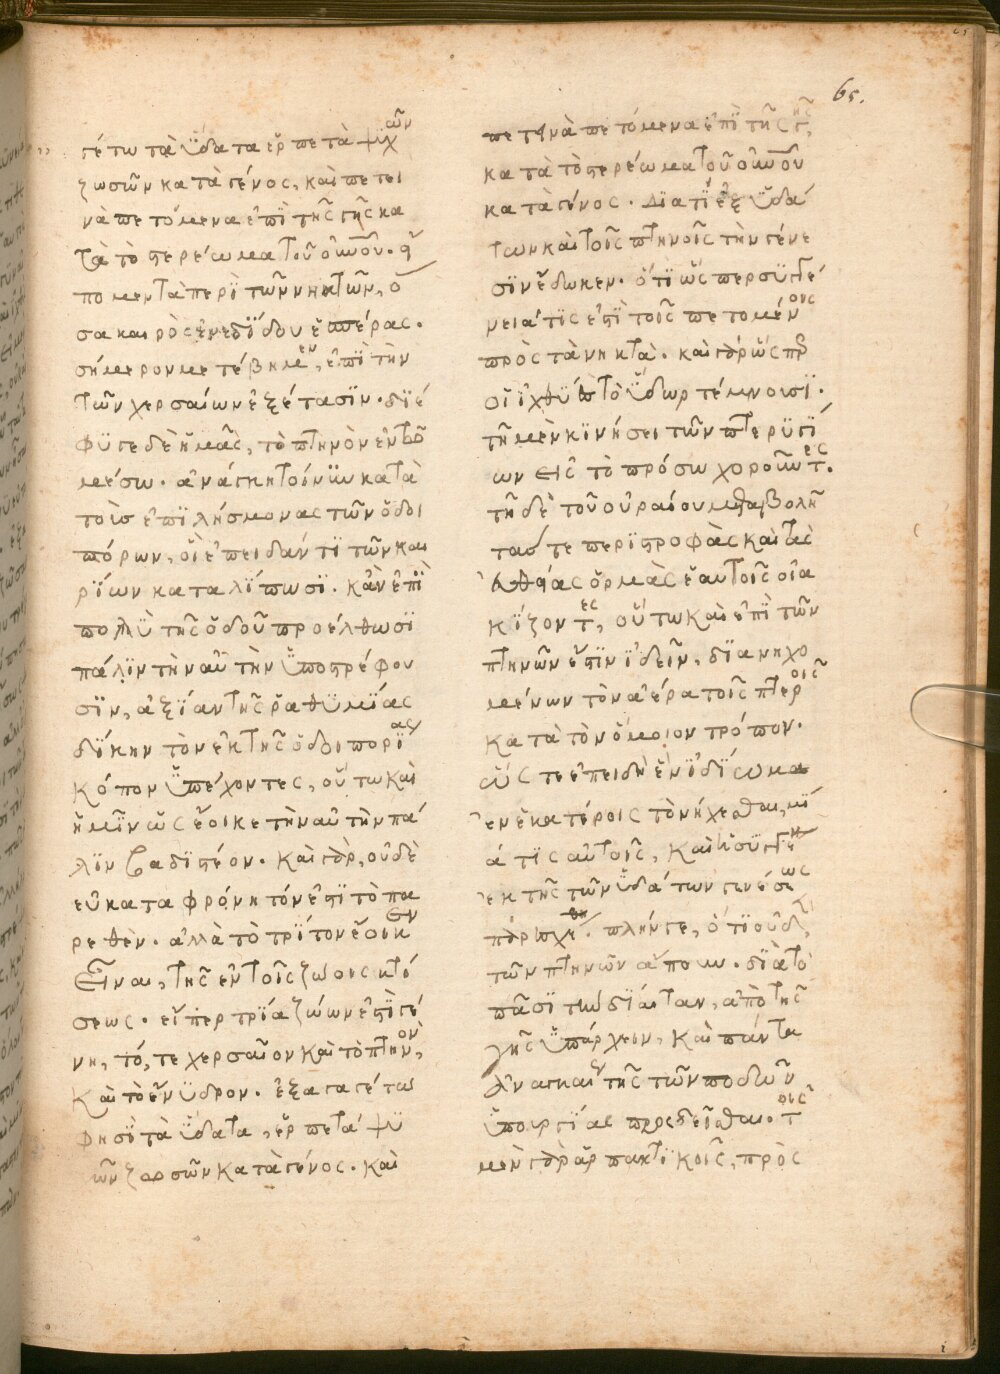 65.
γέτω τὰ ὕδατα ἑρπετὰ ψυχῶν
ζωσῶν κατὰ γένος, καὶ πετει
νὰ πετόμενα ἐπὶ τῆς γῆς κα
τὰ τὸ στερέωμα τοῦ οὐνοῦ. εἴ
πομεν τὰ περὶ τῶν νηκτῶν, ὅ
σα καιρὸς ἐνεδίδου ἑσπέρας.
σήμερον μετέβημεν, ἐπὶ τὴν
τῶν χερσαίων ἐξέτασιν. διέ
φυγε δὲ ἡμᾶς, τὸ πτηνὸν ἐν τῶ
μέσω. ἀνάγκη τοίνυν κατὰ
τοὺς ἐπιλήσμονας τῶν ὁδοι
πόρων, οἳ ἐπειδάν τι τῶν και
ρίων καταλίπωσι. κἂν ἐπὶ
πολὺ τῆς ὁδοῦ προέλθωσι
πάλιν τὴν αὐτὴν ὑποστρέφου
σιν, ἀξίαν τῆς ῥαθυμίας
δίκην τὸν ἐκ τῆς ὁδοιπορίας
κόπον ὑπέχοντες, οὕτω καὶ
ἡμῖν ὡς ἔοικε τὴν αὐτὴν πά
λιν βαδιστέον. καὶ γὰρ, οὐδὲ
εὐκαταφρόνητόν ἐστι τὸ πα
ρεθὲν. ἀλλὰ τὸ τρίτον ἔοικεν
εἶναι, τῆς ἐν τοῖς ζώοις κτί
σεως. εἴπερ τρία ζώων ἐστὶ γέ
νη, τό, τε χερσαῖον καὶ τὸ πτηνὸν,
καὶ τὸ ἔνυδρον. ἐξαγαγέτω
φησὶ τὰ ὕδατα, ἑρπετὰ ψυ
χῶν ζωσῶν κατὰ γένος. καὶ
πετεινὰ πετόμενα ἐπὶ τῆς γῆς,
κατὰ τὸ στερέωμα τοῦ οὐνοῦ
κατὰ γένος. διατί ἐξ ὑδά
των καὶ τοῖς πτηνοῖς τὴν γένε
σιν ἔδωκεν. ὅτι ὥσπερ συγγέ
νειά τις ἐστὶ τοῖς πετομένοις
πρὸς τὰ νηκτά. καὶ γὰρ ὥσπερ
οἱ ἰχθῦς τὸ ὕδωρ τέμνουσι.
τῆ μὲν κινήσει τῶν πτερυγί
ων εἰς τὸ πρόσω χοροῦντες.
τῆ δὲ τοῦ οὐραίου μεταβολῆ
τάς τε περιστροφὰς καὶ τὰς
εὐθείας ὁρμὰς ἑαυτοῖς οἰα
κίζοντες, οὕτω καὶ ἐπὶ τῶν
πτηνῶν ἔστιν ἰδεῖν, διανηχο
μένων τὸν ἀέρα τοῖς πτεροῖς
κατὰ τὸν ὅμοιον τρόπον.
ὥστε ἐπειδὴ ἓν ἰδίωμα
ἐν ἑκατέροις τὸ νήχεσθαι, μί
α τις αὐτοῖς, καὶ ἡ συγγένεια
ἐκ τῆς τῶν ὑδάτων γενέσεως
παρεσχέθη. πλήν γε, ὅτι οὐδὲν
τῶν πτηνῶν ἄπουν. διὰ τὸ
πᾶσι τὴν δίαιταν, ἀπὸ τῆς
γῆς ὑπάρχειν, καὶ πάντα
ἀναγκαίως τῆς τῶν ποδῶν
ὑπουργίας προσδεῖσθαι. τοῖς
μὲν γὰρ ἁρπακτικοῖς, πρὸς